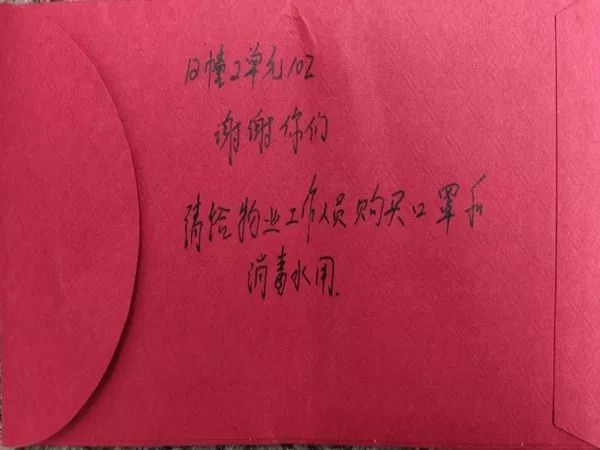 12幢2单元102
谢谢你们
请给物业工作人员购买口罩和
消毒水用.